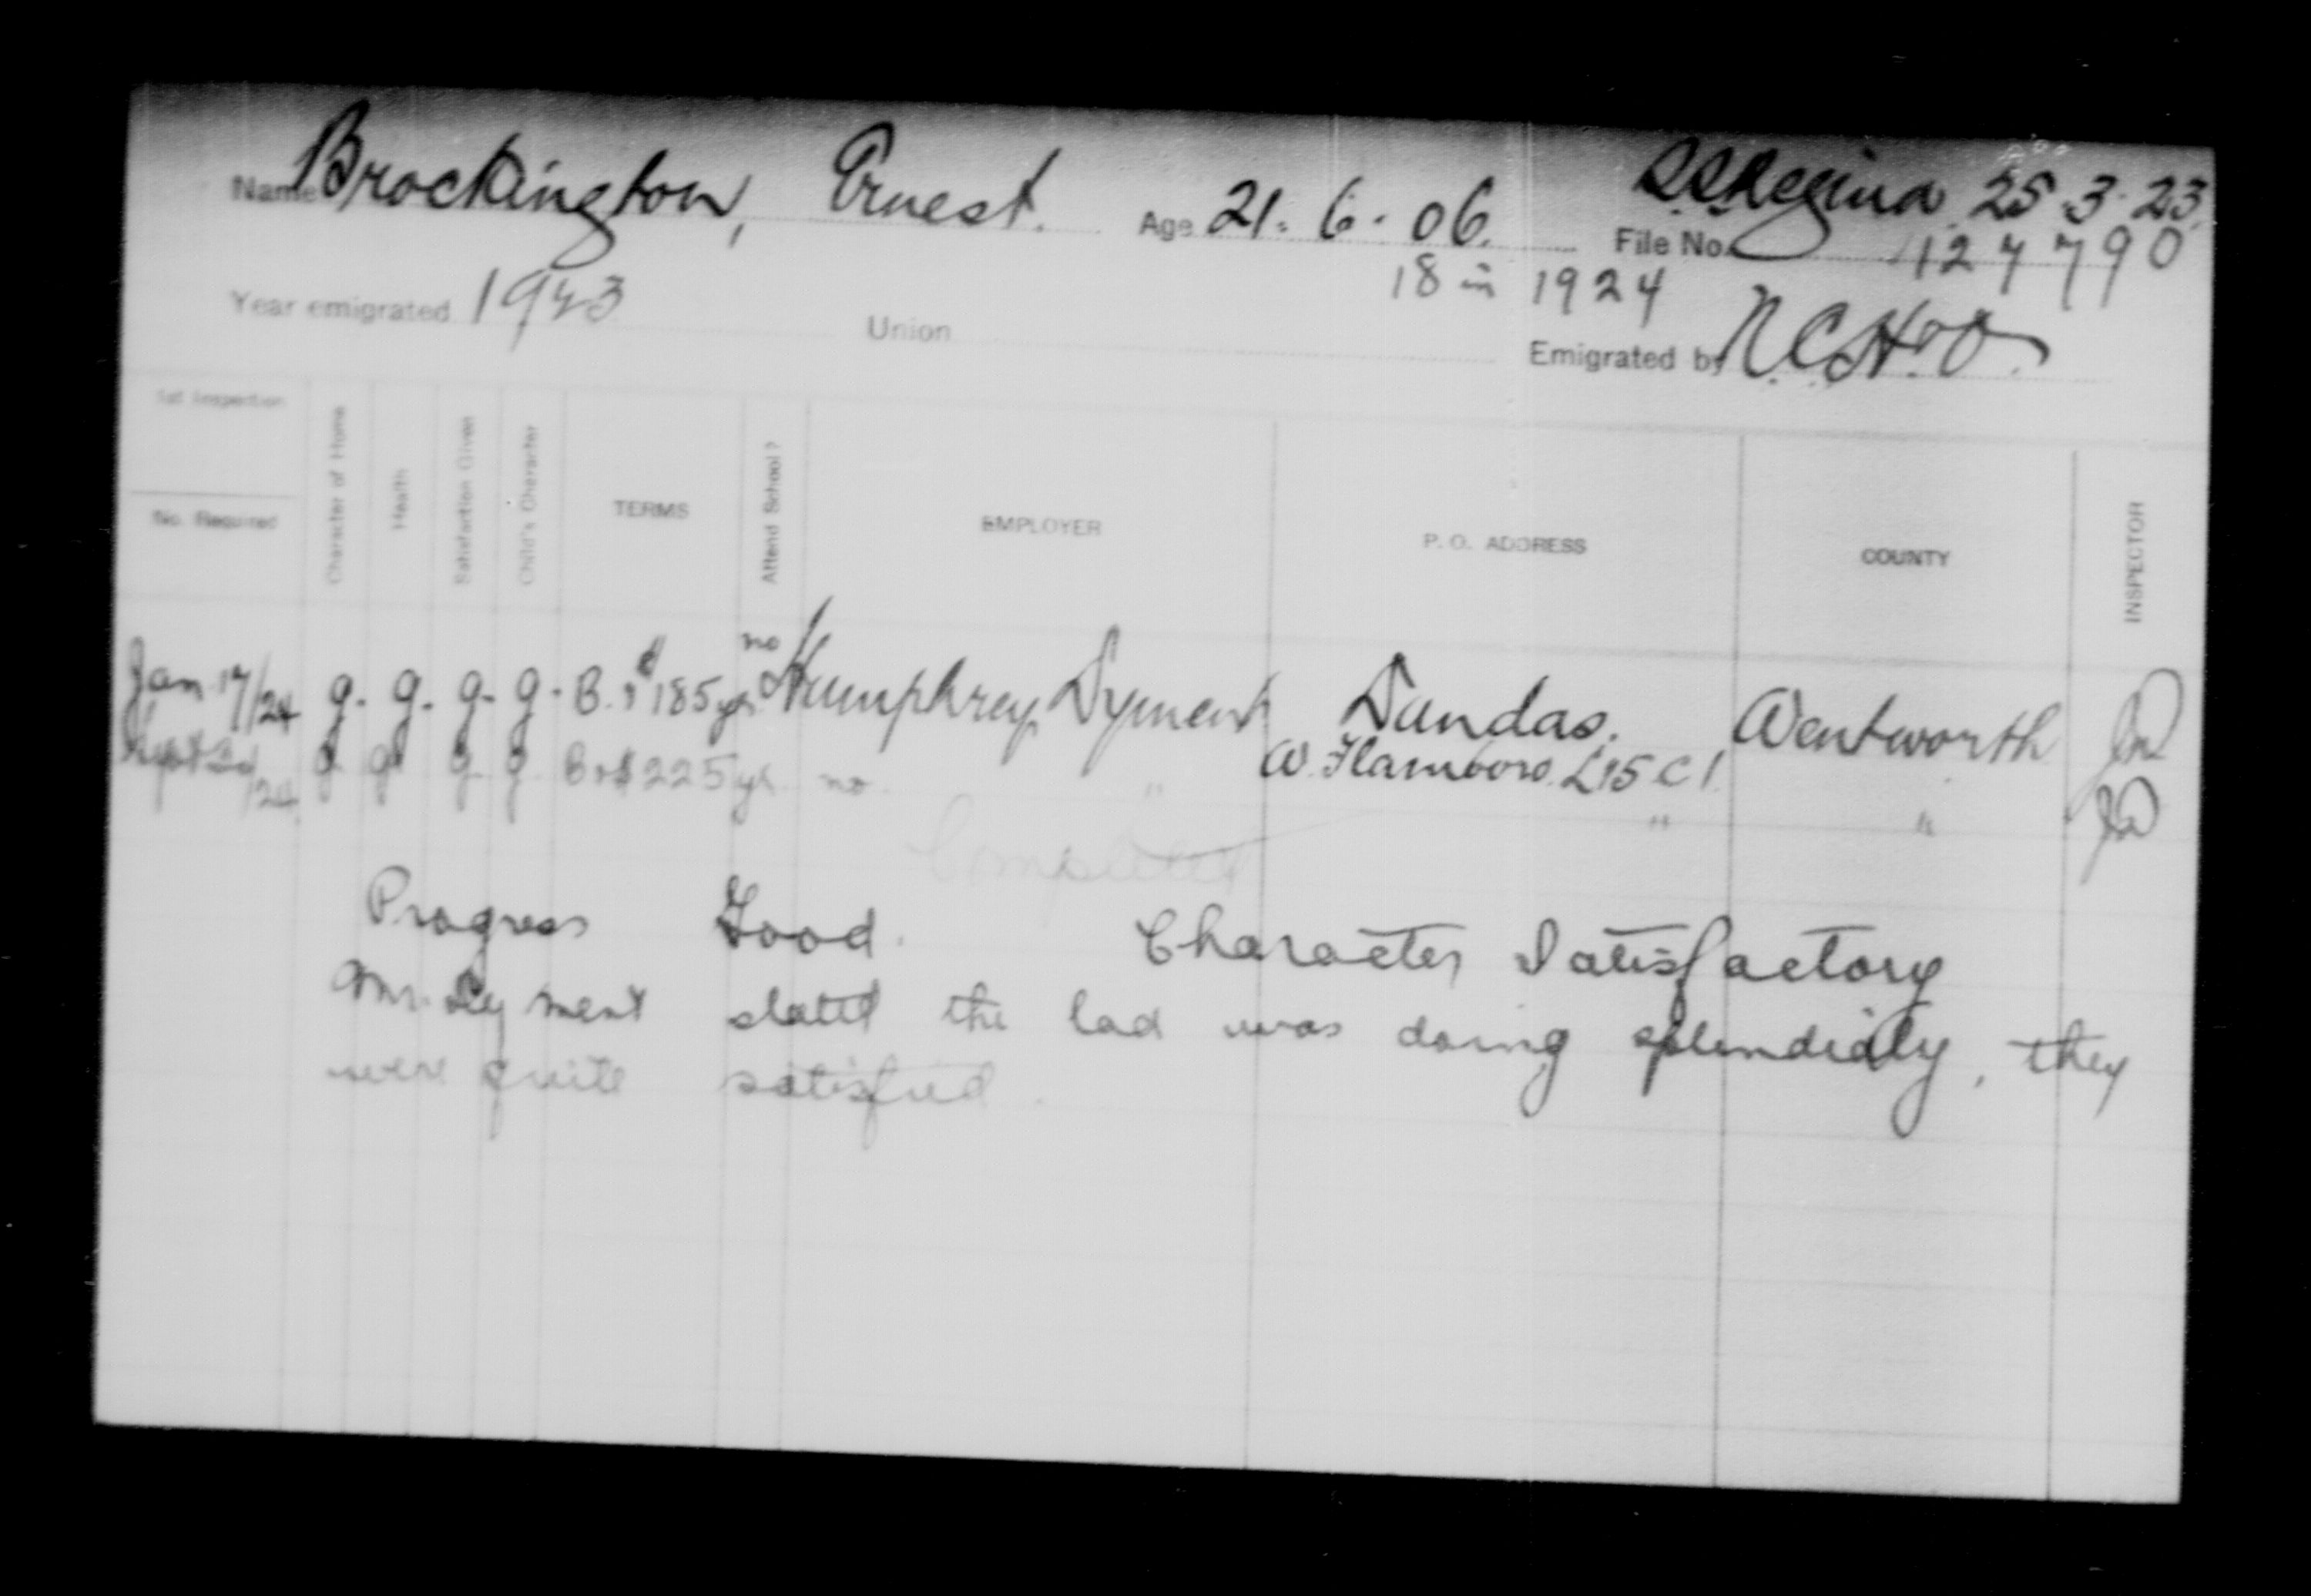 S.S. Regina 25.3.23
Name Brockington, Ernest. Age 21. 6. 06. File No. 127790
18 in 1924
Year emigrated 1923 Union Emigrated by N.C.H.&O.
1st Inspection
No. Required Character of Home Health Satisfaction Given Child's Character TERMS Attend School? EMPLOYER P. O. ADDRESS COUNTY INSPECTOR
Jan 17/24 g. g. g. g. B. & $185 yr no Humphrey Dyment Dundas. Wentworth
W. Flamboro. L15 C1
Sept /24 g g g g B. & $225 yr. no. " " "
Completed
Progress Good. Character Satisfactory
Mr. Dyment stated the lad was doing splendidly, they
were quite satisfied.